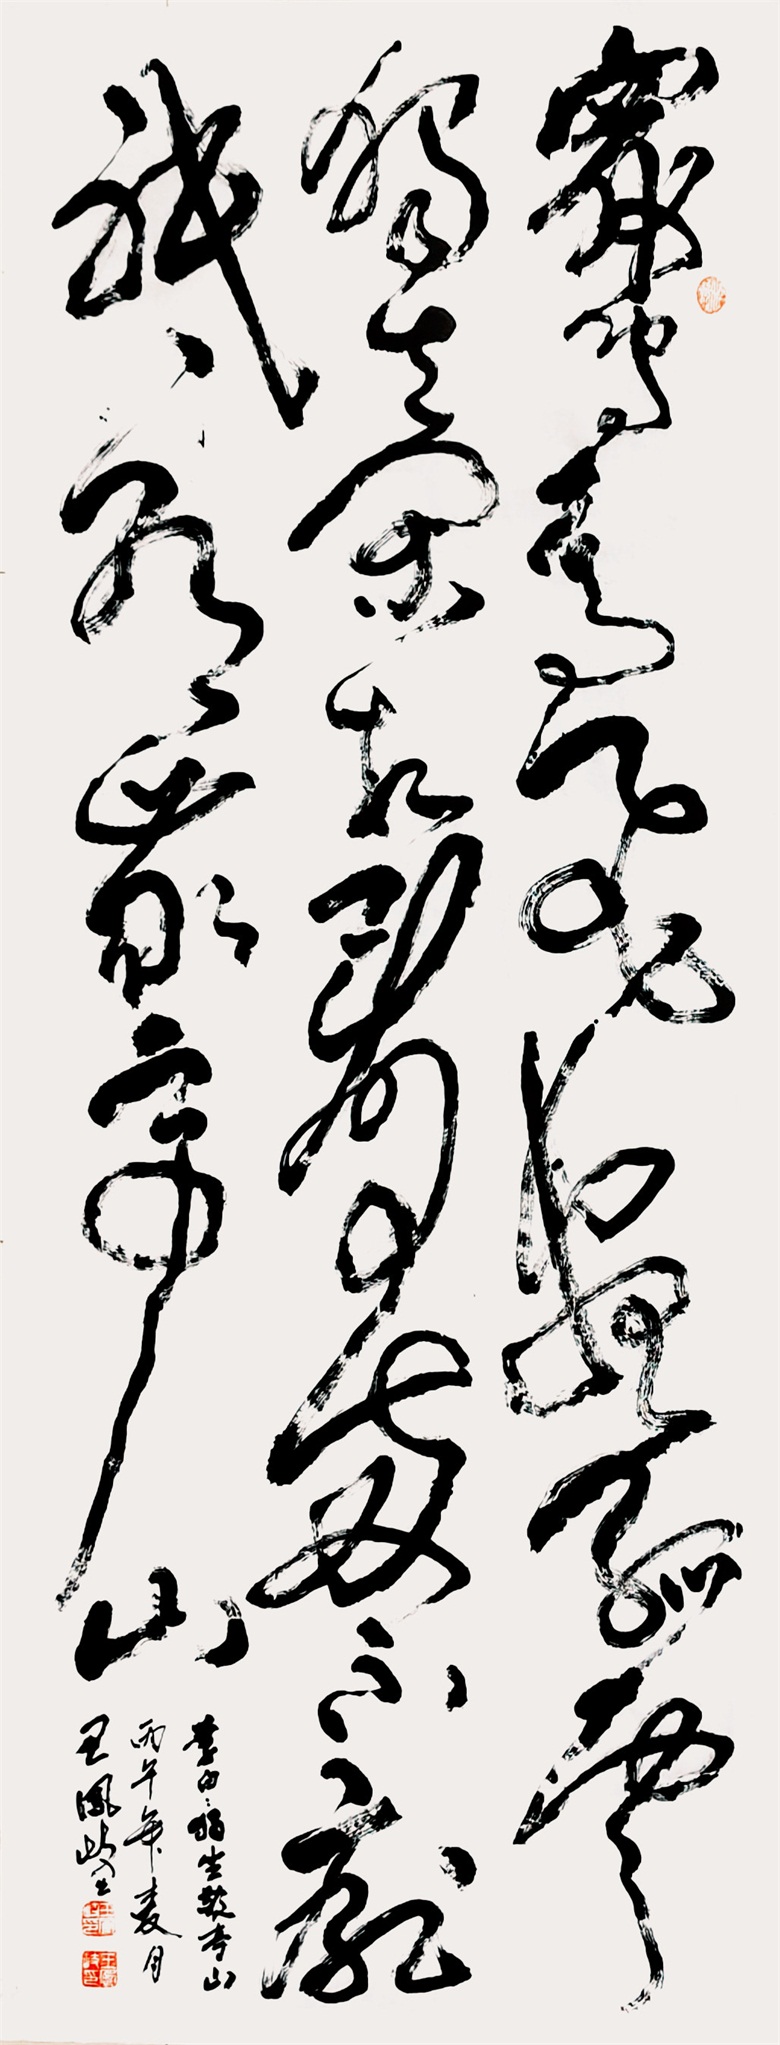 眾鳥高飛盡孤雲
獨去閑相看兩不厭
祇有敬亭山
李白獨坐敬亭山
丙午年夏月
王鳳岐書